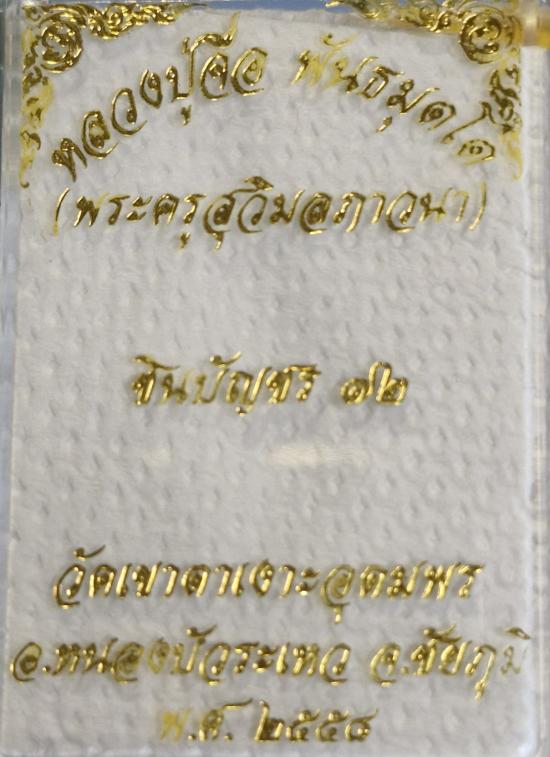 หลวงปู่จื่อ พันธมุตโต
(พระครูสุวิมลภาวนา)
ชินบัญชร ๗๒
วัดเขาตาเงาะอุดมพร
อ.หนองบัวระเหว จ.ชัยภูมิ
พ.ศ. ๒๕๕๘